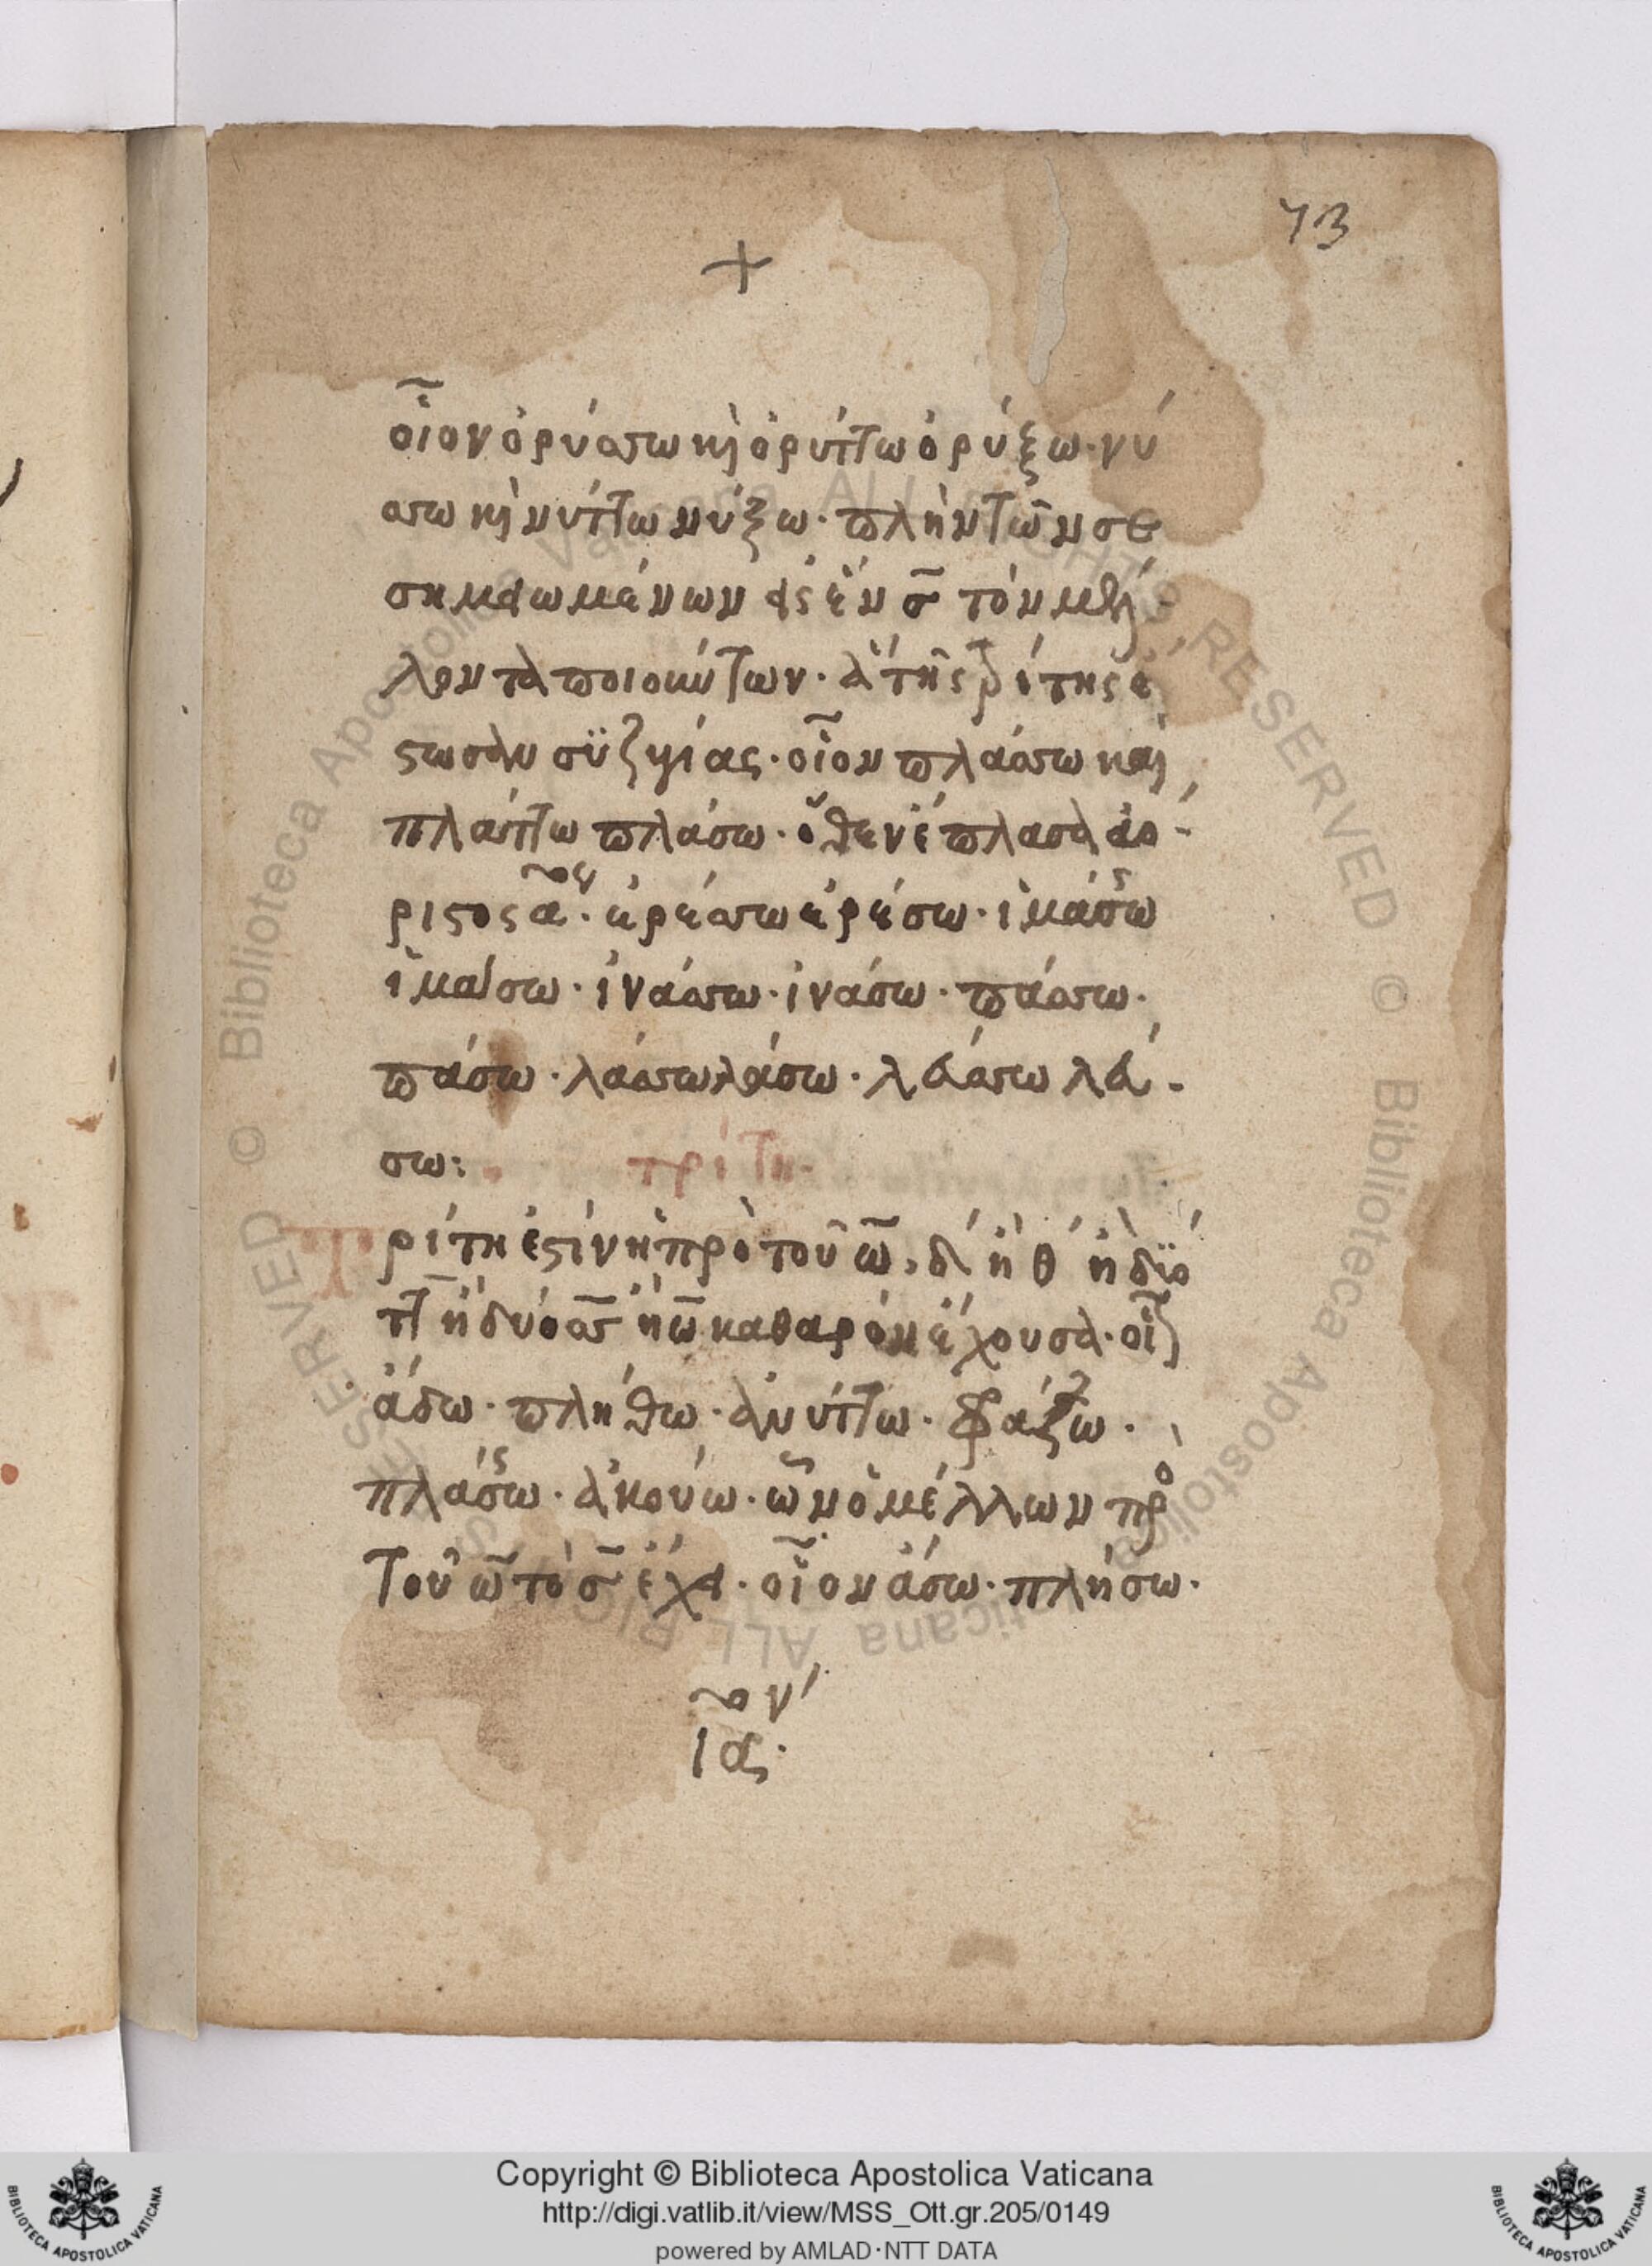 73
+
οἷον ὀρύσσω κὶ ὀρύττω ὀρύξω · νύ
σσω κὶ νύττω νύξω · πλὴν τῶν σε
σημειωμένων εἰς ἓν σ τὸν μέλ-
λοντα ποιούντων · ἃ τῆς τρίτης ἔ
στωσαν συζυγίας · οἷον πλάσσω καὶ
πλάττω πλάσω · ὅθεν ἔπλασα ἀό-
ριστος α · ἐρέσσω ἐρέσω · ἱμάσσω
ἱμάσω · ἰνάσσω · ἰνάσω · πάσσω ·
πάσω · λάσσω λάσω · λεύσσω λεύ-
σω :
τρίτη
Τρίτη ἐστὶν ἡ πρὸ τοῦ ω, δ ἢ θ ἢ δύο
ττ ἢ δύο σσ ἢ ω καθαρὸν ἔχουσα · οἷον
ἄδω · πλήθω · ἀνύττω · φράζω ·
πλάσσω · ἀκούω · ὧν ὁ μέλλων πρὸ
τοῦ ω τὸ σ ἔχει · οἷον ἄσω · πλήσω ·
Copyright © Biblioteca Apostolica Vaticana
http://digi.vatlib.it/view/MSS_Ott.gr.205/0149
powered by AMLAD·NTT DATA